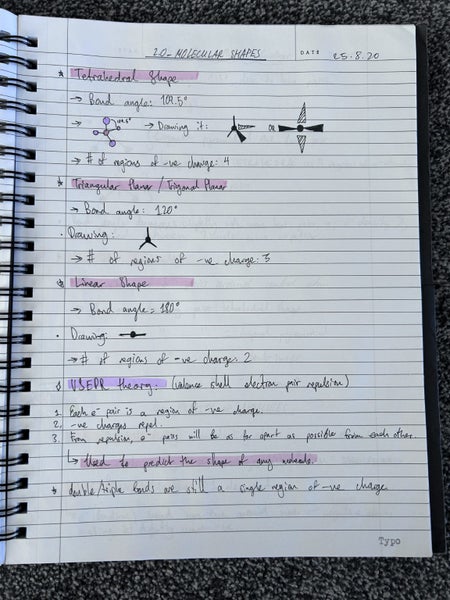 20 - MOLECULAR SHAPES
DATE 25.8.20
* Tetrahedral Shape
→ Bond angle: 109.5°
→ 109.5° → Drawing it: OR
→ # of regions of -ve charge: 4
* Triangular Planar / Trigonal Planar
→ Bond angle: 120°
· Drawing:
→ # of regions of -ve charge: 3
* Linear Shape
→ Bond angle = 180°
· Drawing:
→ # of regions of -ve charge: 2
VSEPR theory: (valence shell electron pair repulsion)
1. Each e⁻ pair is a region of -ve charge.
2. -ve charges repel.
3. From repulsion, e⁻ pairs will be as far apart as possible from each other.
↳ Used to predict the shape of any molecule.
* double/triple bonds are still a single region of -ve charge
Typo